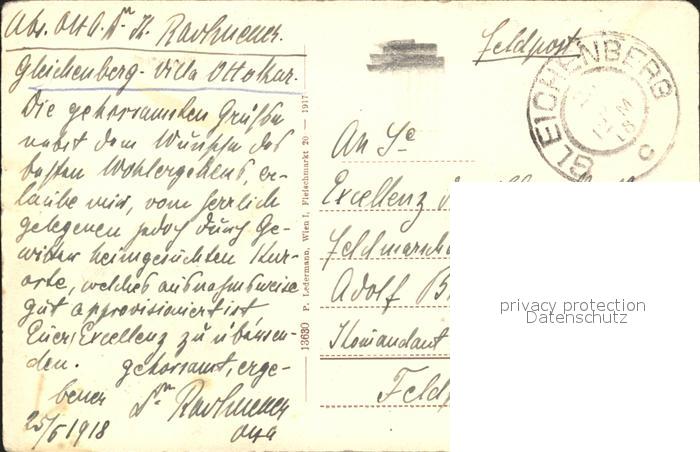 Abs. Ott. A. Dr. K.
Gleichenberg - Villa Ottokar.
Die gehorsamsten Grüße
nebst dem Wunsche des
besten Wohlergehens, er-
laube mir, vom herrlich
gelegenen jedoch durch Ge-
witter heimgesuchten Kur-
orte, welches ausnahmsweise
gut approvisioniert ist
Euer Excellenz zu übersen-
den. gehorsamst, erge-
bener Dr.
25/6 1918
13630 P. Ledermann, Wien I, Fleischmarkt 20 — 1917
Feldpost
GLEICHENBERG
c
An Se
Excellenz
Feldmarscha
Adolf B
Komandant
Feldp
privacy protection
Datenschutz